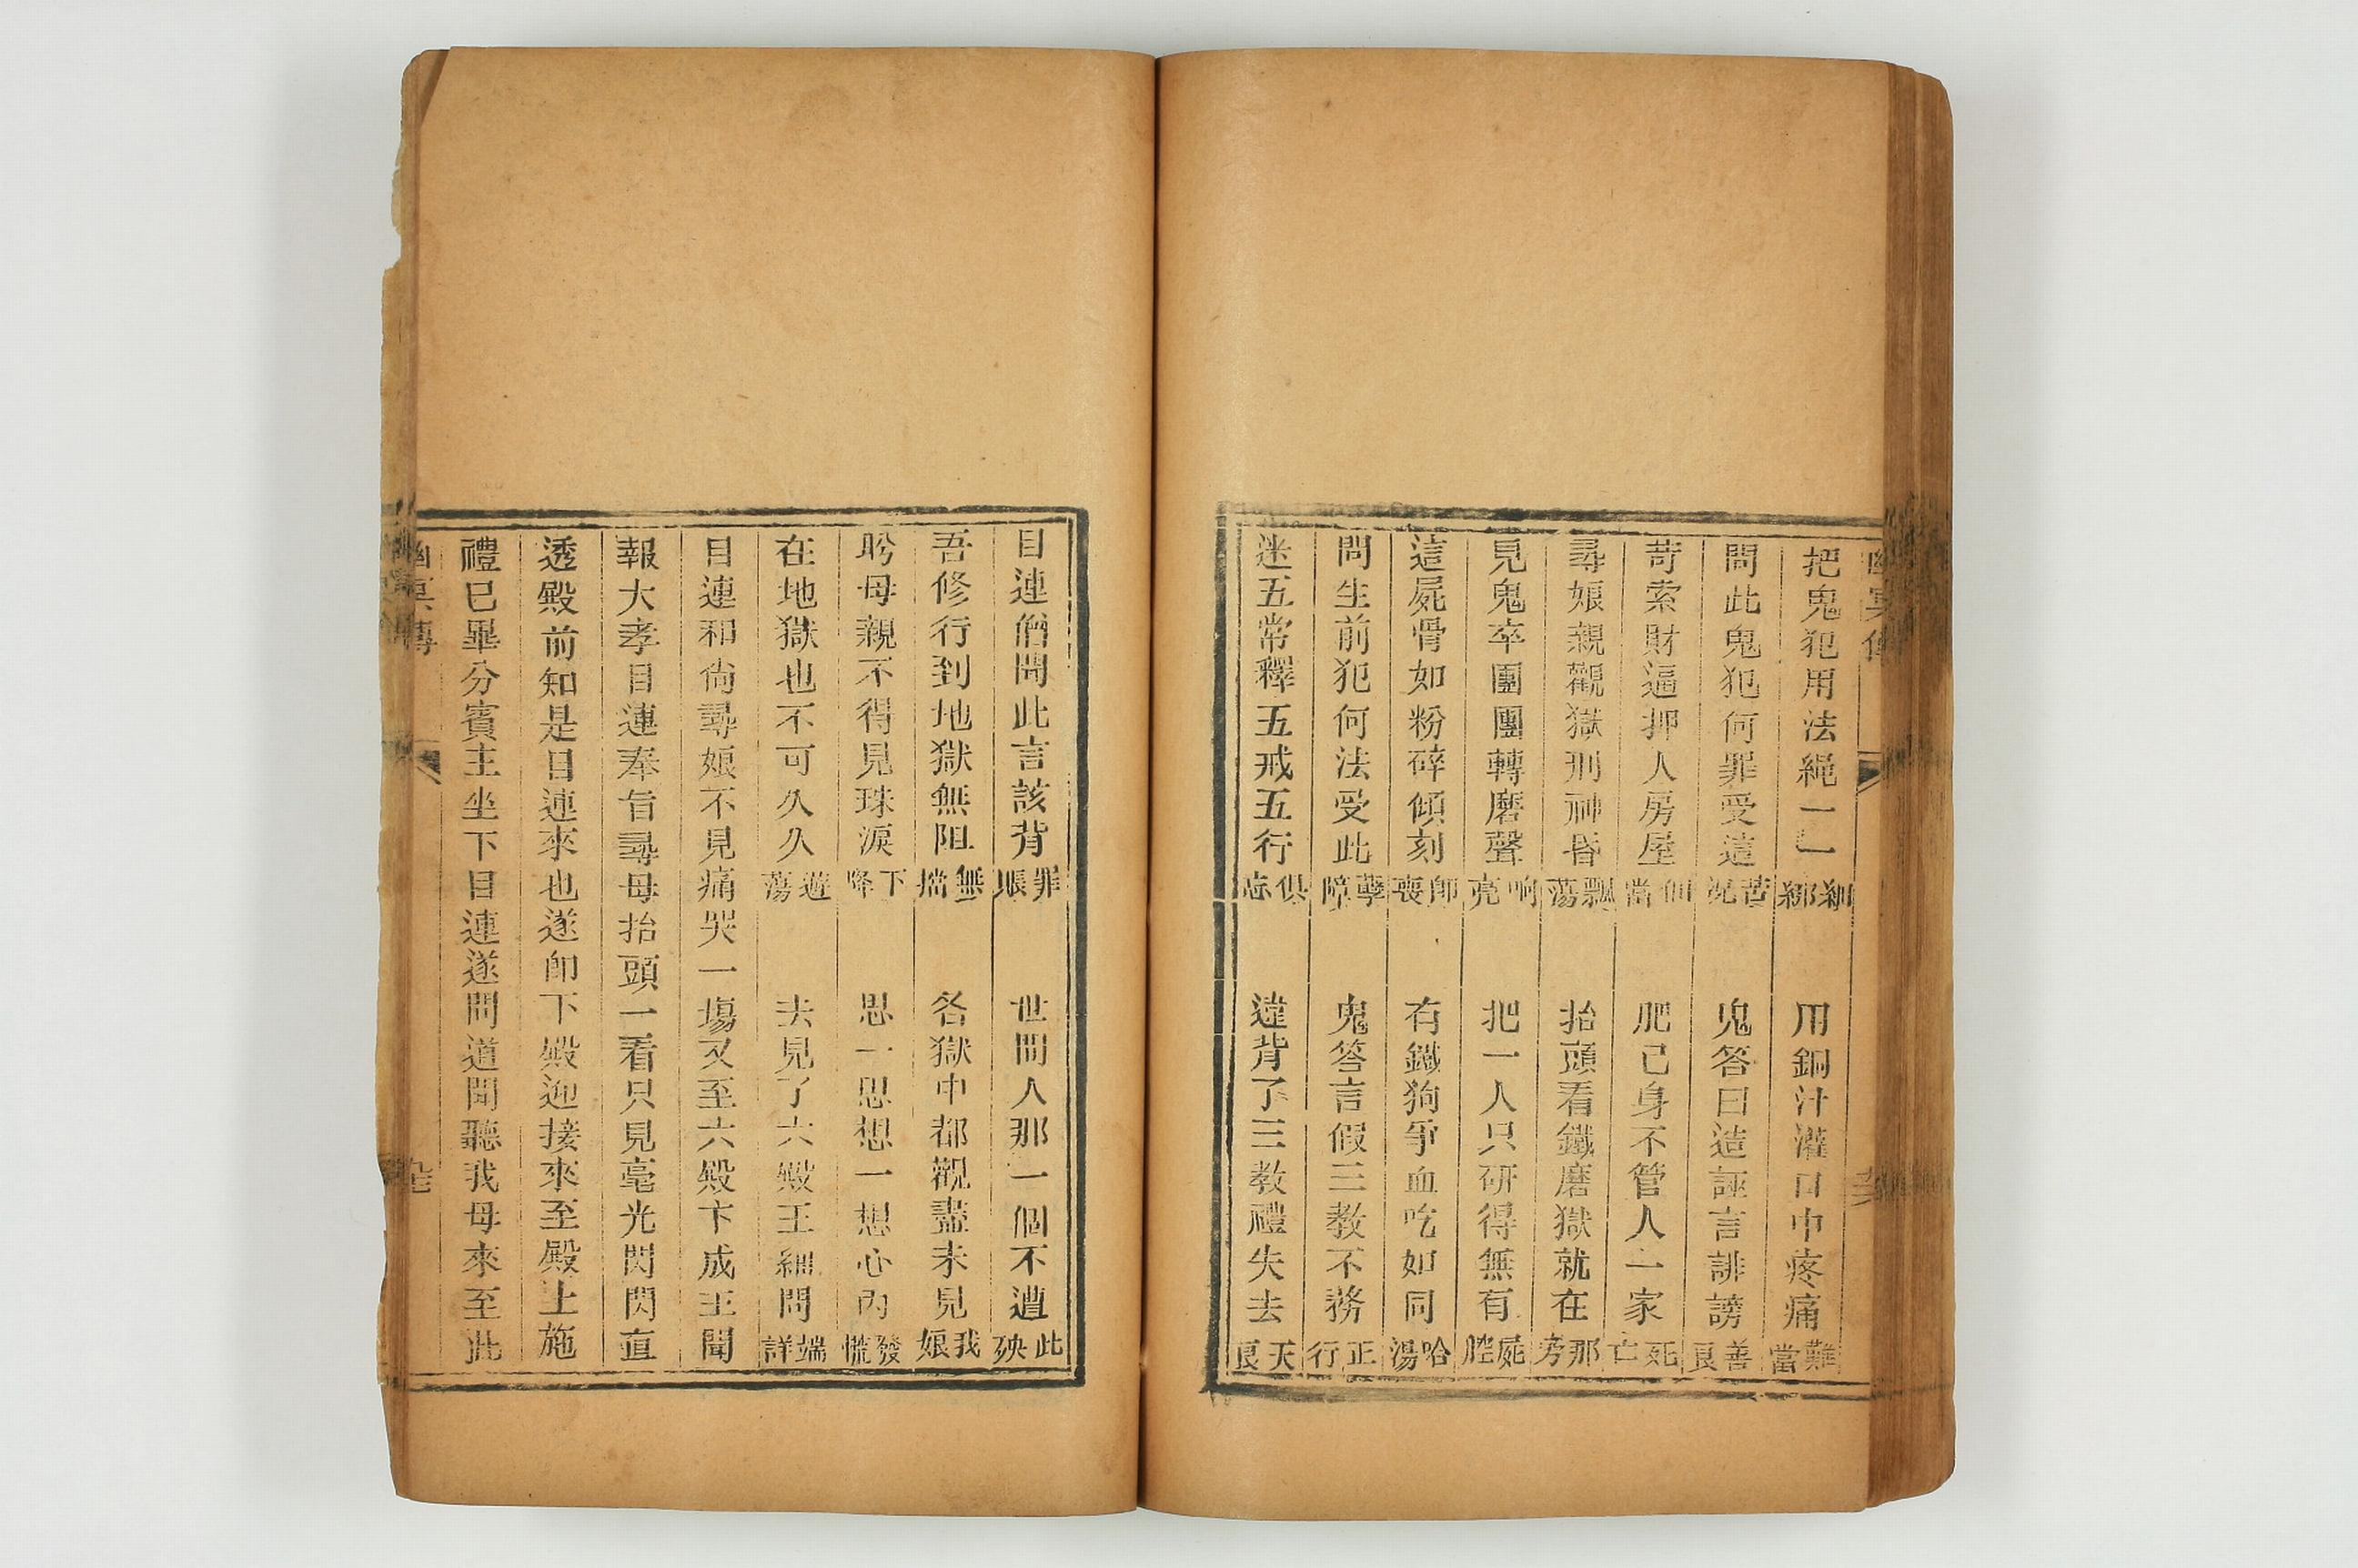 把鬼犯用法繩一一綑綁 用銅汁灌口中疼痛難當
問此鬼犯何罪受這苦況 鬼答曰造誣言誹謗善良
苛索財逼押人房屋佃當 肥己身不管人一家死亡
尋娘親觀獄刑神昏飄蕩 抬頭看鐵磨獄就在那旁
見鬼卒團團轉磨聲响亮 把一人只研得無有屍腔
這屍骨如粉碎傾刻卽喪 有鐵狗爭血吃如同哈湯
問生前犯何法受此孽障 鬼答言假三教不務正行
迷五常釋五戒五行俱忘 違背了三教禮失去天良
目連僧聞此言該背罪賬 世間人那一個不遭此殃
吾修行到地獄無阻無擋 各獄中都觀盡未見我娘
盼母親不得見珠淚下降 思一思想一想心內發慌
在地獄也不可久久遊蕩 去見了六殿王細問端詳
目連和尙尋娘不見痛哭一塲又至六殿卞成王聞
報大孝目連奉旨尋母抬頭一看只見毫光閃閃直
透殿前知是目連來也遂卽下殿迎接來至殿上施
禮已畢分賓主坐下目連遂問道聞聽我母來至此
幽冥傳